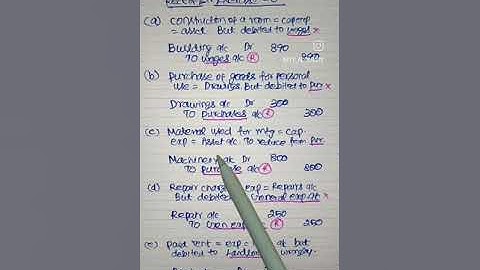 (a) Construction of a room = cap exp
= asset But debited to wages x
Building a/c Dr 890
To wages a/c (R) 890
(b) Purchase of goods for personal
use = Drawings. But debited to Pur x
Drawings a/c Dr 300
To Purchases a/c (R) 300
(c) Material used for mfg = Cap.
exp = Asset a/c To reduce from Pur
Machinery a/c Dr 800
To Purchase a/c (R) 800
(d) Repair charges = exp = Repairs a/c
But debited to General exp a/c x
Repair a/c 250
To Gen exp a/c (R) 250
(e) Paid rent = exp = a/c but
debited to Landlord wrongly